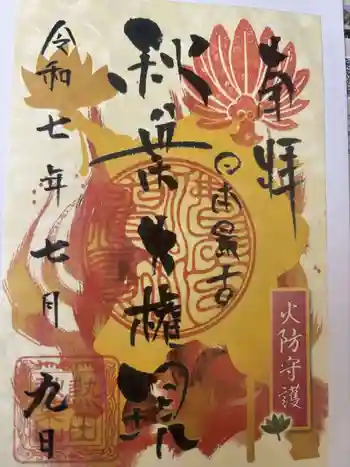 奉拝
日本最古
秋葉大権現
令和七年七月九日
火防守護